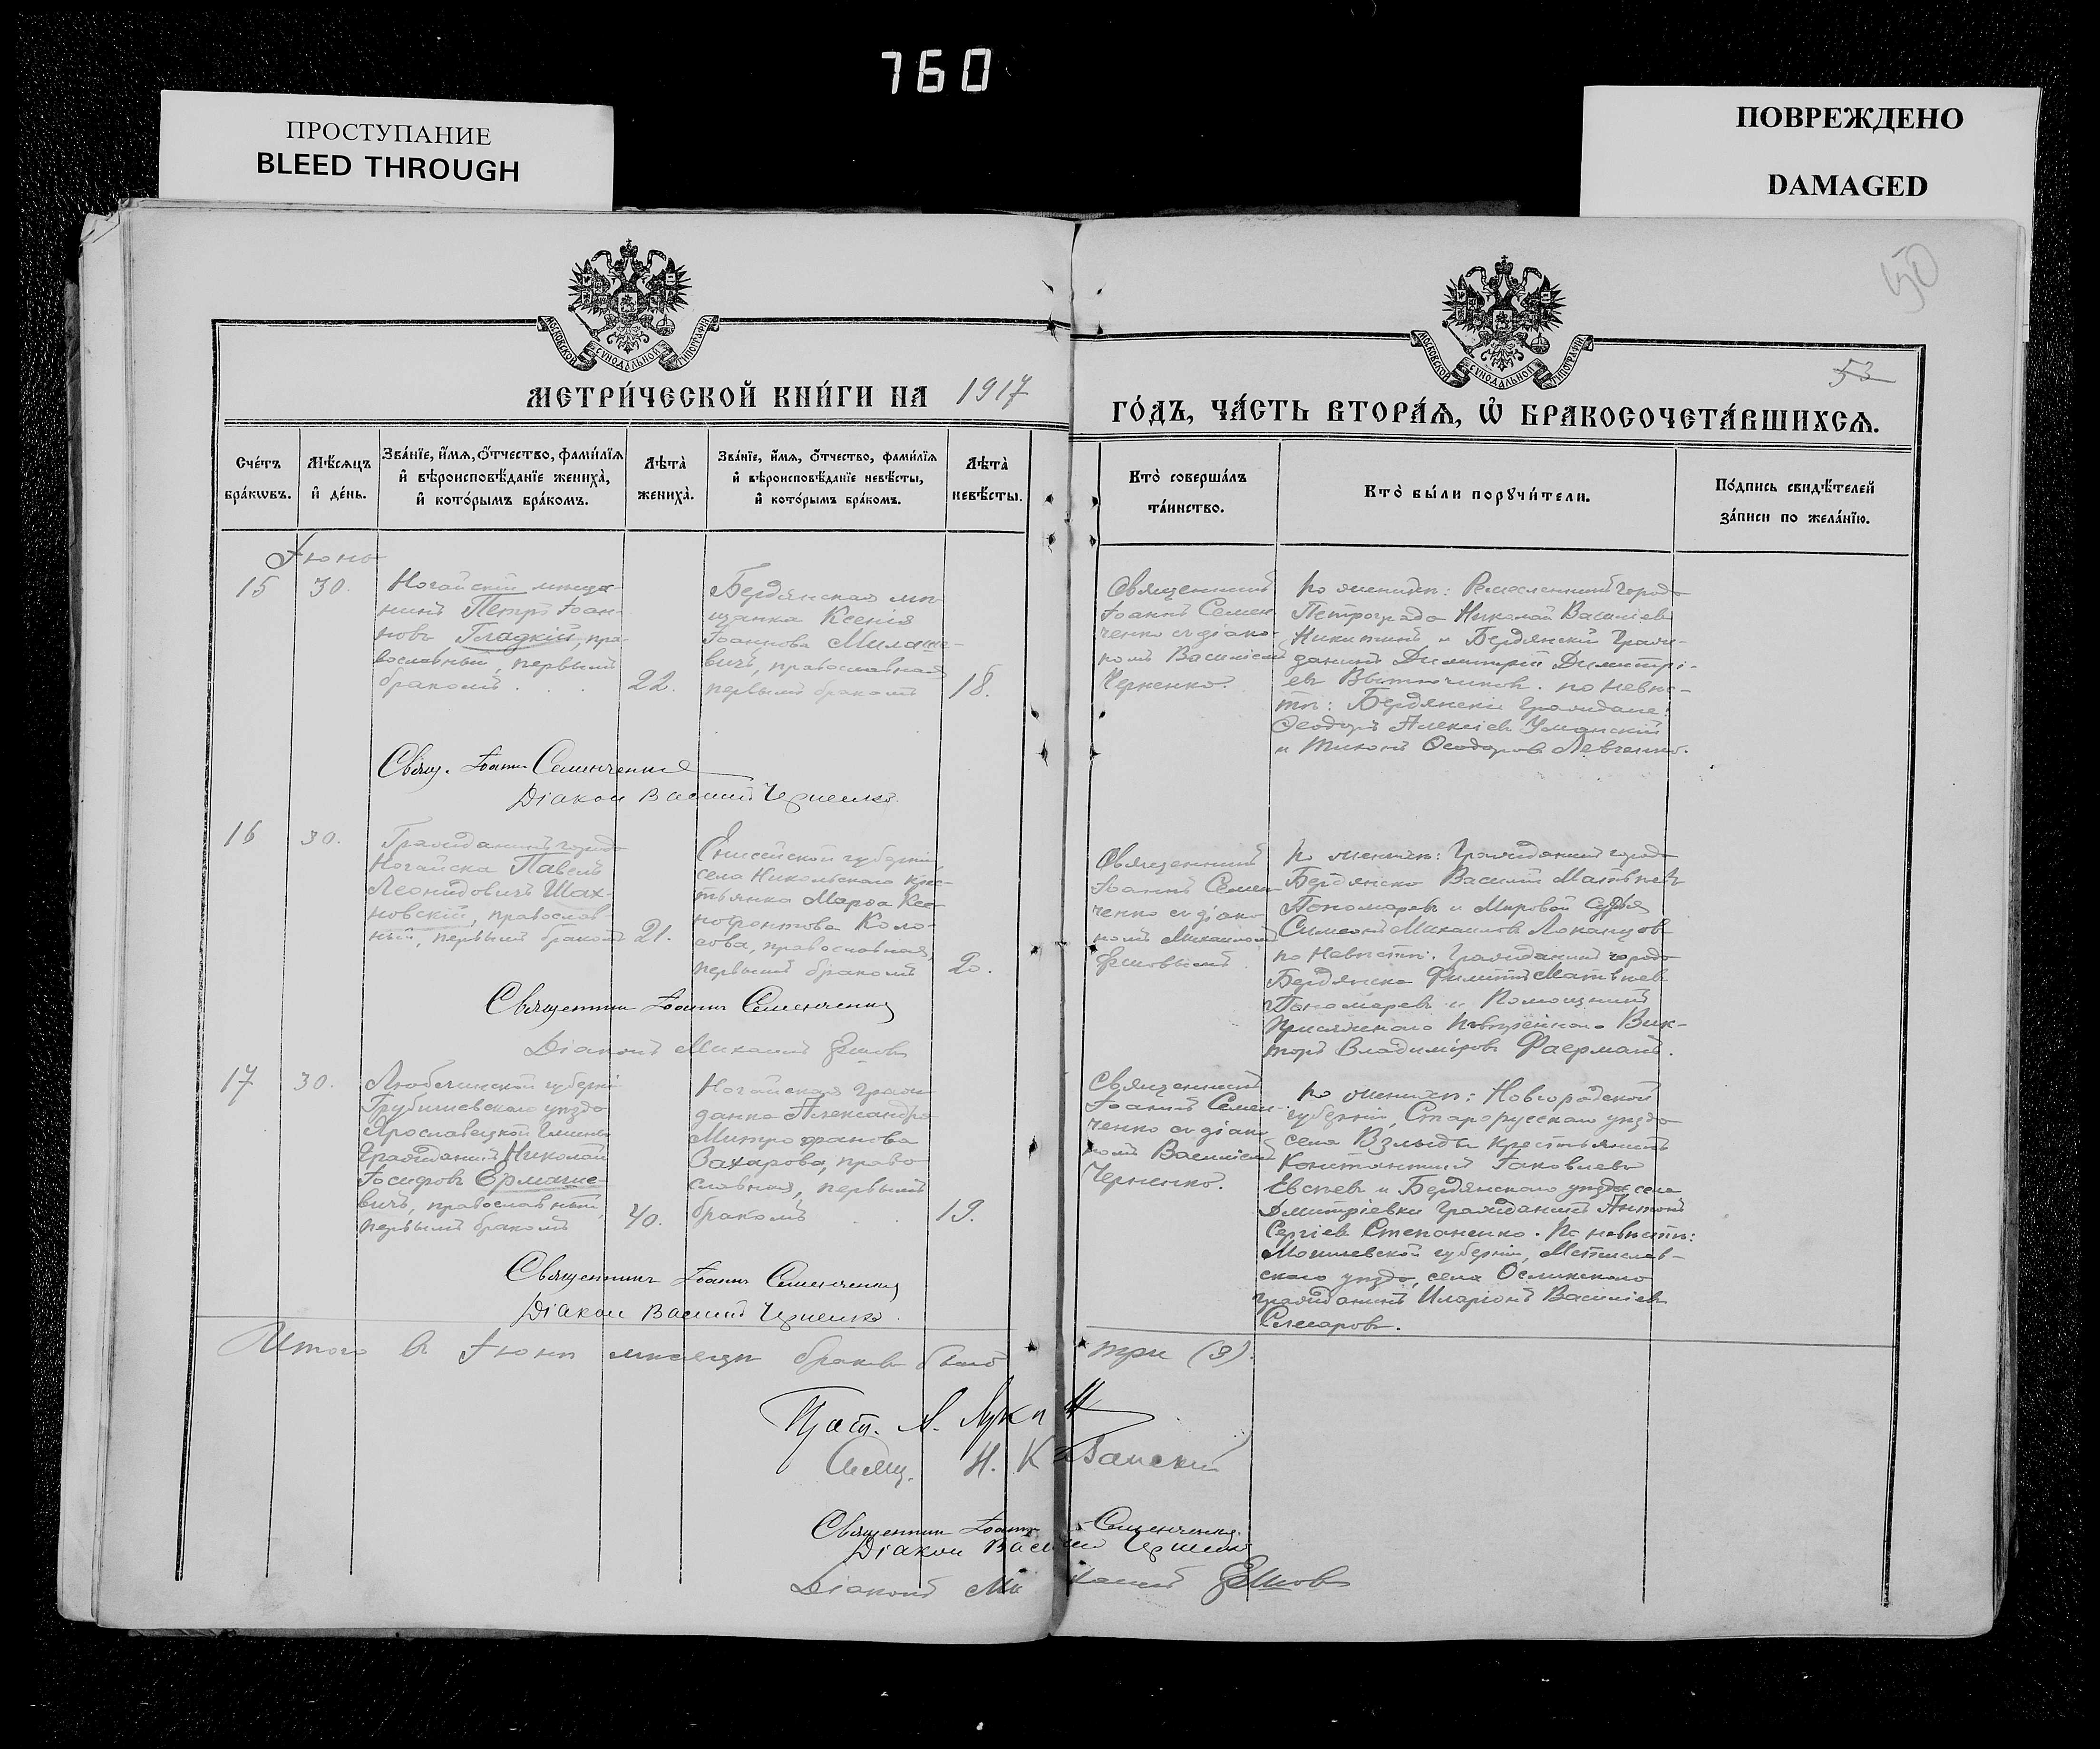 760
ПРОСТУПАНИЕ
BLEED THROUGH
ПОВРЕЖДЕНО
DAMAGED
50
53
МОСКОВСКОЙ СѴНОДАЛЬНОЙ ТИПОГРАФІИ
МОСКОВСКОЙ СѴНОДАЛЬНОЙ ТИПОГРАФІИ
МЕТРИ́ЧЕСКОЙ КНИ́ГИ НА 1917
ГО́ДЪ, ЧА́СТЬ ВТОРА́Ѧ, Ѡ҆ БРАКОСОЧЕТА́ВШИХСѦ.
Сче́тъ
бра́кѡвъ.
Мѣ́сѧцъ
и҆ де́нь.
Зва́нїе, и҆́мѧ, ѻ҆́тчество, фами́лїѧ
и҆ вѣроисповѣ́данїе жениха̀,
и҆ кото́рымъ бра́комъ.
Лѣта̀
жениха̀.
Зва́нїе, и҆́мѧ, ѻ҆́тчество, фами́лїѧ
и҆ вѣроисповѣ́данїе невѣ́сты,
и҆ кото́рымъ бра́комъ.
Лѣта̀
невѣ́сты.
Кто̀ соверша́лъ
та́инство.
Кто̀ бы́ли порꙋчи́тели.
По́дпись свидѣ́телей
за́писи по жела́нїю.
Іюнь
15
30.
Ногайскій мѣща-
нинъ Петръ Іоан-
новъ Гладкій, пра-
вославный, первымъ
бракомъ . .
22.
Бердянская мѣ-
щанка Ксенія
Іоаннова Милаше-
вичъ, православная
первымъ бракомъ
18.
Священникъ
Іоаннъ Семен-
ченко съ діако-
номъ Василіемъ
Черненко.
по женихѣ: Ремесленникъ города
Петрограда Николай Василіевъ
Никитинъ и Бердянскій граж-
данинъ Димитрій Димитрі-
евъ . по невѣс-
тѣ: Бердянскіе граждане:
Ѳеодоръ Алексіевъ Уманскій
и Тихонъ Ѳеодоровъ Левченко.
Свящ. Іоаннъ Семенченко
Діаконъ Василій Черненко
16
30.
Гражданинъ города
Ногайска Павелъ
Леонидовичъ Шах-
новскій, православ-
ный, первымъ бракомъ
21.
Енисейской губерніи,
села Никольскаго крес-
тьянка Марѳа Ксе-
нофонтова Коло-
сова, православная,
первымъ бракомъ
20.
Священникъ
Іоаннъ Семен-
ченко съ діако-
номъ Михаиломъ
по женихѣ: Гражданинъ города
Бердянска Василій Матвѣевъ
Пономаревъ и Мировой Судья
Симеонъ Михаиловъ
по невѣстѣ: Гражданинъ города
Бердянска Филиппъ Матвѣевъ
Пономаревъ и Помощникъ
Присяжнаго Повѣреннаго Вик-
торъ Владиміровъ Фаерманъ.
Священникъ Іоаннъ Семенченко
Діаконъ Михаилъ
17
30.
Люблинской губерніи
Грубешевскаго уѣзда
Ярославецкой гмины
гражданинъ Николай
Іосифовъ Ермаше-
вичъ, православный,
первымъ бракомъ
40.
Ногайская граж-
данка Александра
Митрофанова
Захарова, право-
славная, первымъ
бракомъ . .
19.
Священникъ
Іоаннъ Семен-
ченко съ діако-
номъ Василіемъ
Черненко.
по женихѣ: Новгородской
губерніи, Старорусскаго уѣзда
села Взвыды крестьянинъ
Константинъ Іаковлевъ
Евсѣевъ и Бердянскаго уѣзда села
Дмитріевки гражданинъ Антонъ
Сергіевъ Степаненко. По невѣстѣ:
Могилевской губерніи, Мстислав-
скаго уѣзда, села
гражданинъ Иларіонъ Василіевъ
Слесаровъ.
Священникъ Іоаннъ Семенченко
Діаконъ Василій Черненко.
Итого въ Іюнѣ мѣсяцѣ браковъ было три (3).
Прот. А.
Свящ. Н.
Священникъ Іоаннъ Семенченко
Діаконъ Василій Черненко
Діаконъ Михаилъ